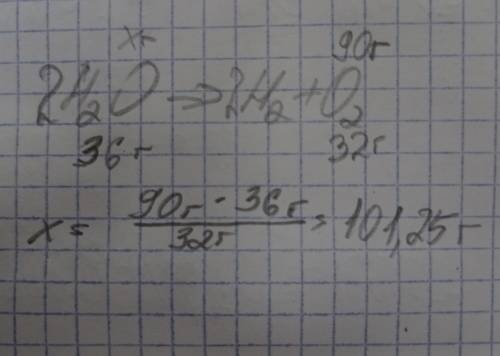 xг 90г
2H₂O → 2H₂ + O₂
36г 32г
x = 90г · 36г / 32г = 101,25г